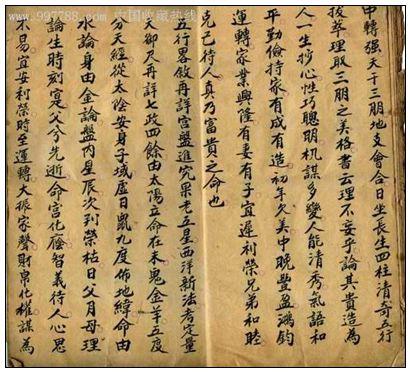 www.997788.com 中国收藏热线
中轉强天干三朋地支會合日坐長生四柱清奇五行
拔萃理取三朋之美格書云理不妄乎論其貴造為
人一生抄心性巧聰明机謀多變人能清秀氣語和
平勤儉持家有成有造初年欠美中晚豐盈鴻鈞
運轉家業興隆有妻有子宜遲利榮兄弟和睦
克己待人真乃富貴之命也
五行畧敘再詳宮盤進究果老五星西洋新法考定量
天御尺再詳七政四餘由太陽立命在未鬼金羊五度
分天經從太陰安身子域虛日鼠九度佈地緯命由
水論身由金論盤內星辰次列榮枯日父月母理
論生時刻定父分先逝命宮化蔭智義待人心思
不易宜安利榮時至運轉大振家聲財帛化權謀為